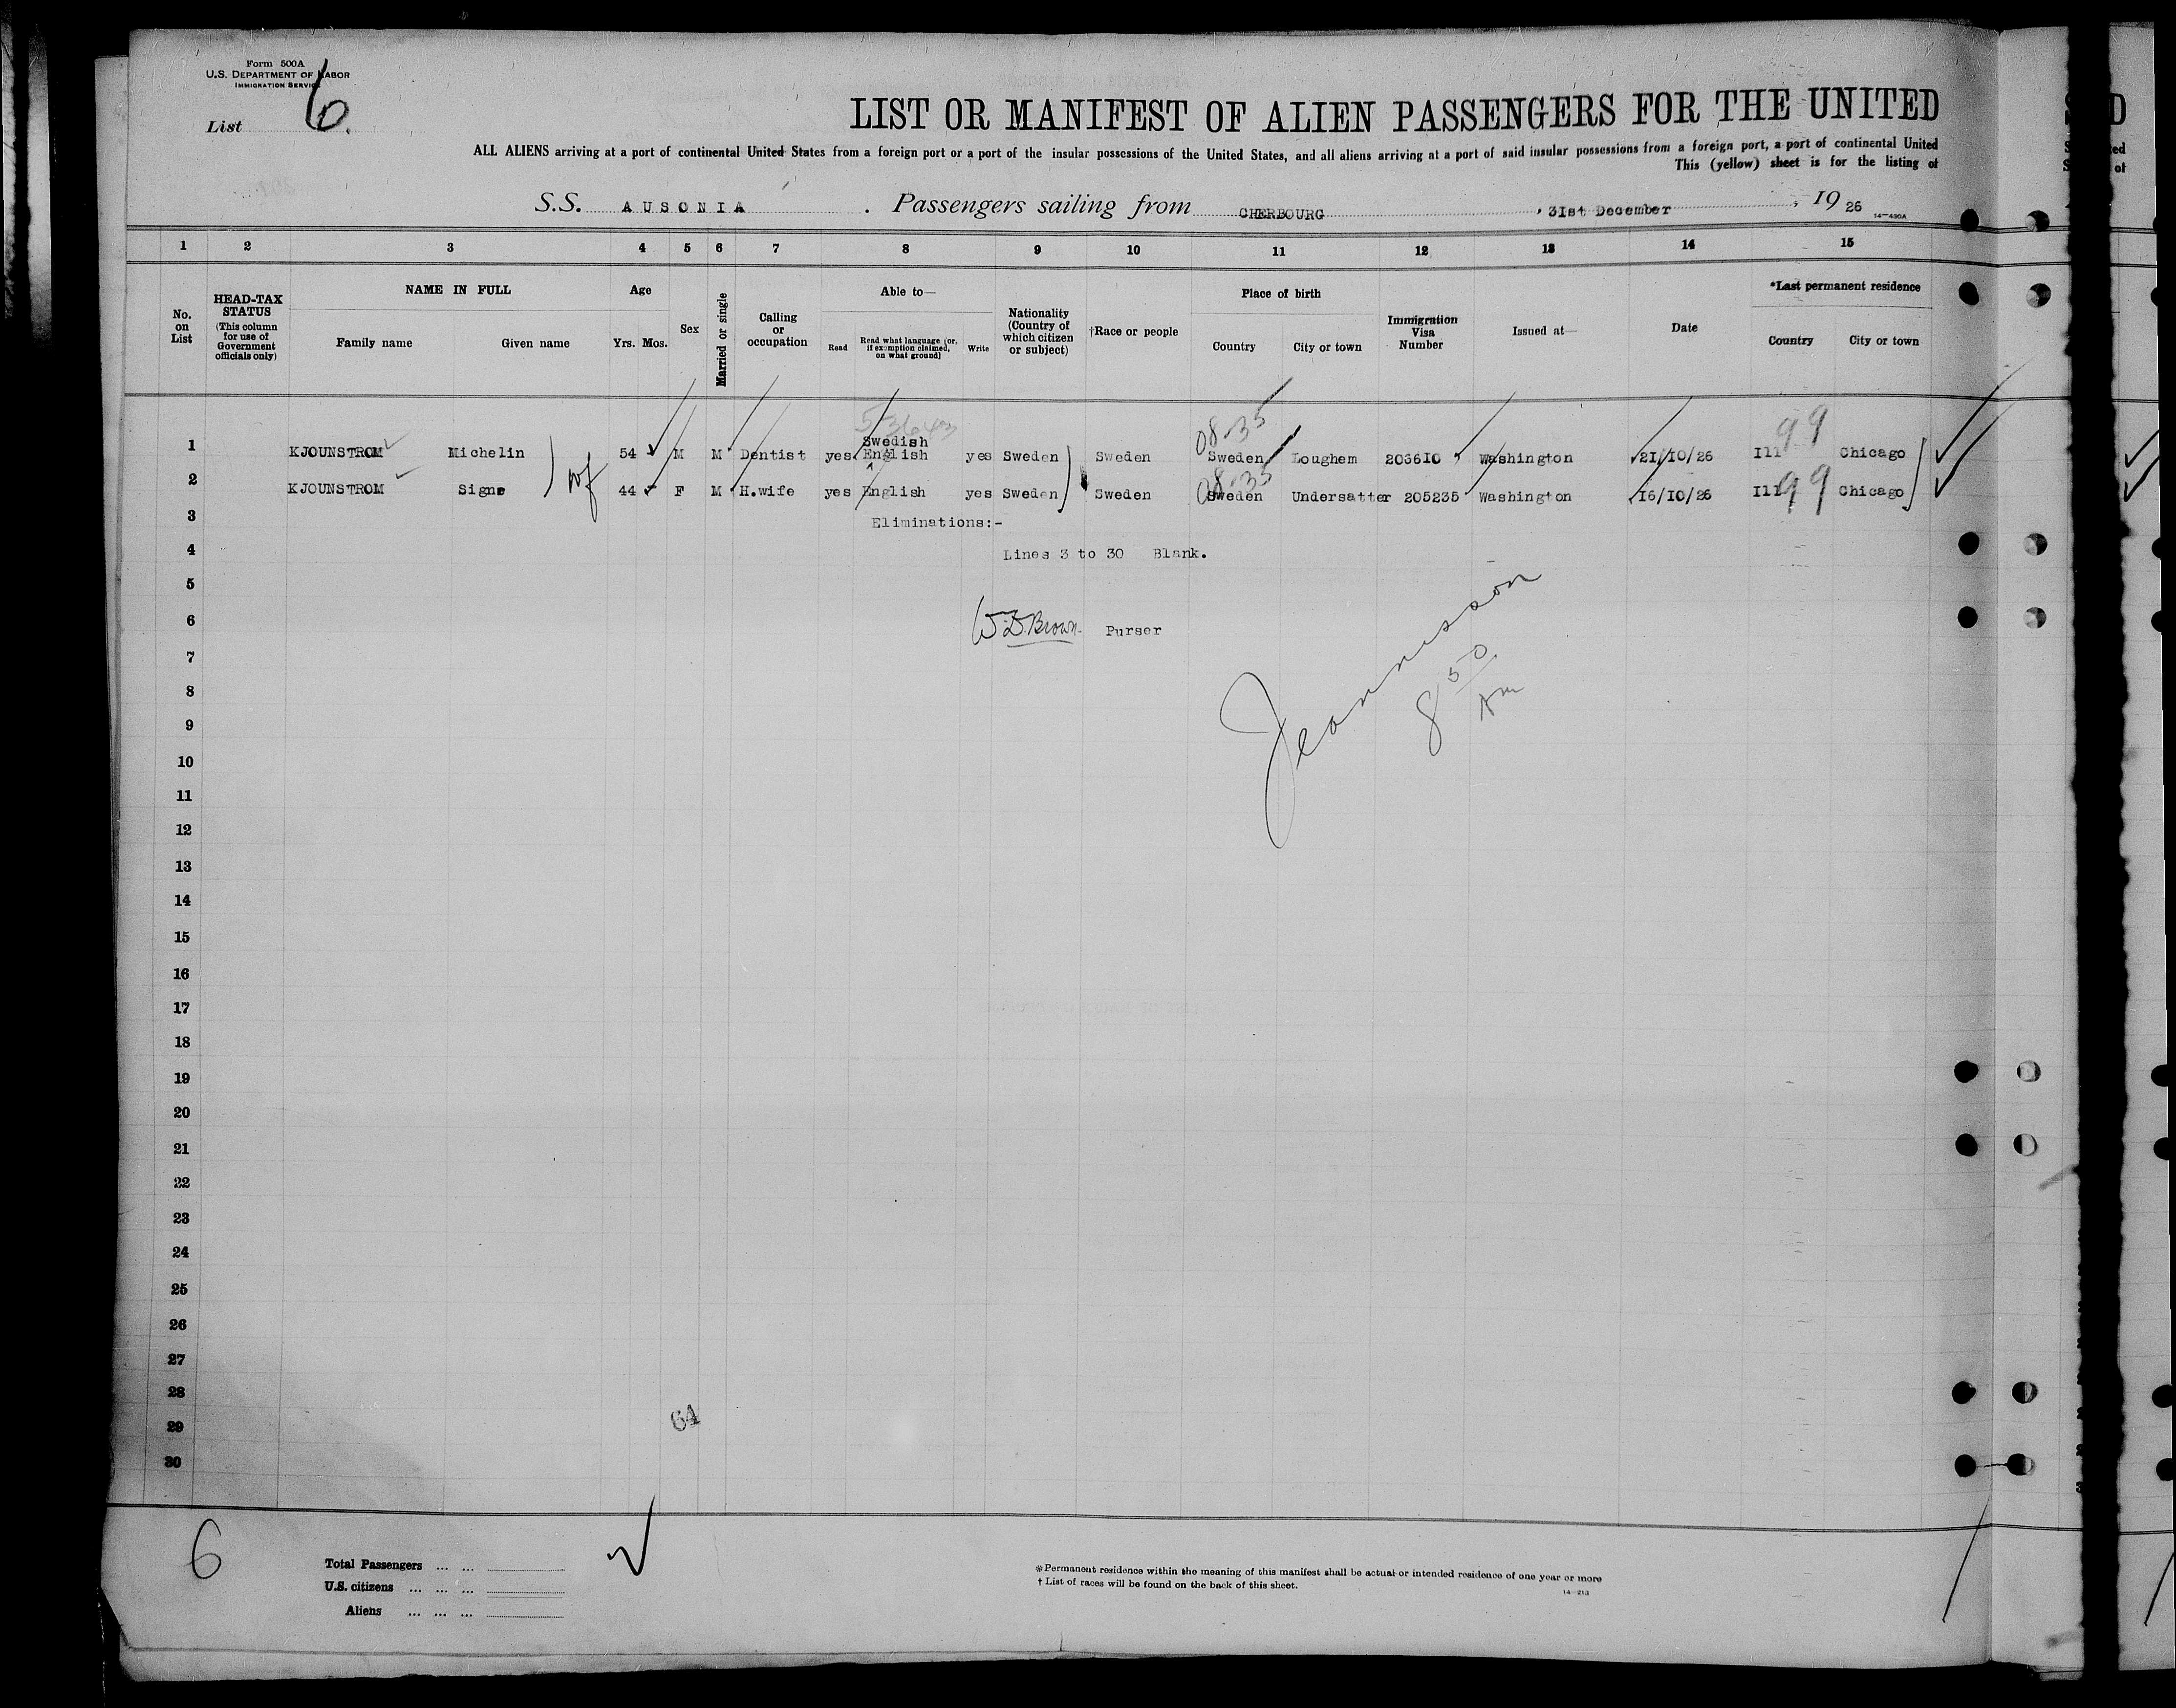 Form 500A
U.S. DEPARTMENT OF LABOR
IMMIGRATION SERVICE
List 6.
LIST OR MANIFEST OF ALIEN PASSENGERS FOR THE UNITED
ALL ALIENS arriving at a port of continental United States from a foreign port or a port of the insular possessions of the United States, and all aliens arriving at a port of said insular possessions from a foreign port, a port of continental United
This (yellow) sheet is for the listing of
S.S. AUSONIA . Passengers sailing from CHERBOURG , 31st December , 19 26
14-490A
1 2 3 4 5 6 7 8 9 10 11 12 13 14 15
No. on List
HEAD-TAX STATUS (This column for use of Government officials only)
NAME IN FULL
Family name Given name
Age
Yrs. Mos.
Sex
Married or single
Calling or occupation
Able to—
Read
Read what language (or, if exemption claimed, on what ground)
Write
Nationality (Country of which citizen or subject)
†Race or people
Place of birth
Country City or town
Immigration Visa Number
Issued at—
Date
*Last permanent residence
Country City or town
53643
08-35 99
Swedish
1 KJOUNSTROM Michelin 54 M M Dentist yes English yes Sweden Sweden Sweden Loughem 203610 Washington 21/10/26 Ill Chicago
wf
08-35 99
2 KJOUNSTROM Signe 44 F M H.wife yes English yes Sweden Sweden Sweden Undersatter 205235 Washington 16/10/26 Ill Chicago
3 Eliminations:-
4 Lines 3 to 30 Blank.
5
6 W.D.Brown Purser
7 Jeannisson
8 8 50 Am
9
10
11
12
13
14
15
16
17
18
19
20
21
22
23
24
25
26
27
28
29 64
30
6
Total Passengers ... ...
U.S. citizens ... ... ...
Aliens ... ... ...
*Permanent residence within the meaning of this manifest shall be actual or intended residence of one year or more
† List of races will be found on the back of this sheet.
14-213